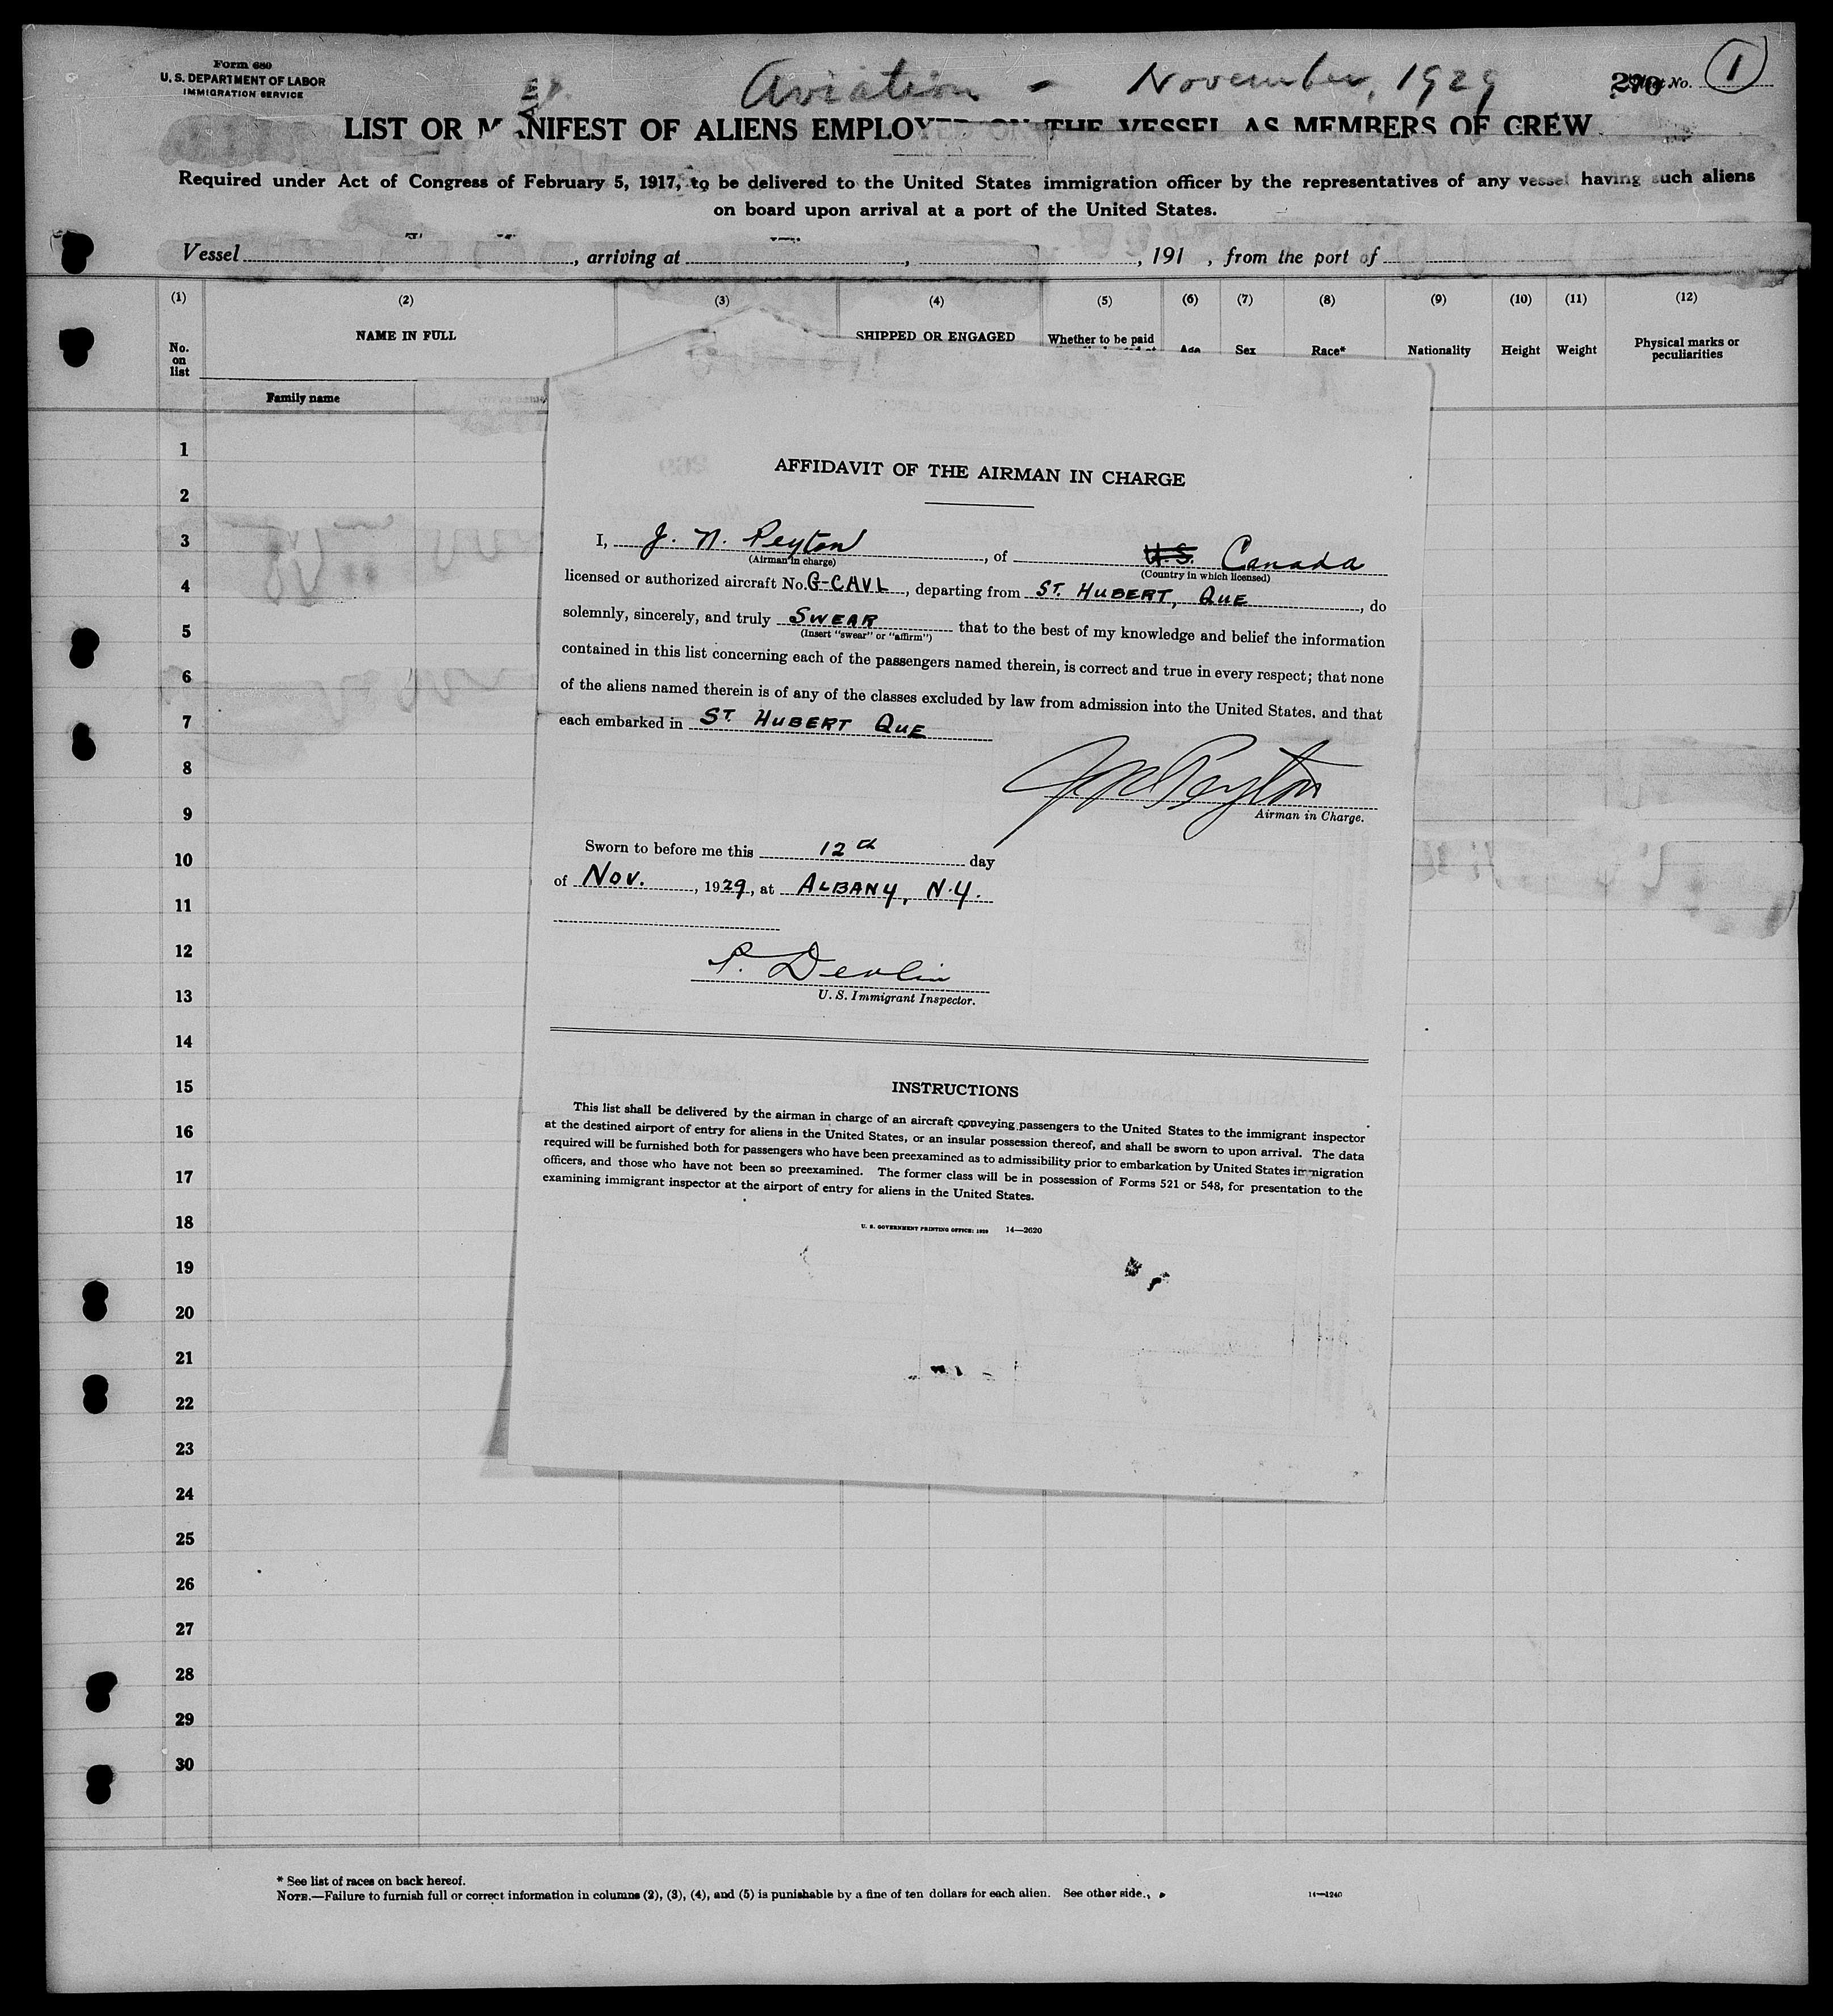 Form 680
U. S. DEPARTMENT OF LABOR
IMMIGRATION SERVICE
Aviation - November, 1929
No. 1
LIST OR MANIFEST OF ALIENS EMPLOYED ON THE VESSEL AS MEMBERS OF CREW
Required under Act of Congress of February 5, 1917, to be delivered to the United States immigration officer by the representatives of any vessel having such aliens
on board upon arrival at a port of the United States.
Vessel , arriving at , , 191 , from the port of
(1) (2) (3) (4) (5) (6) (7) (8) (9) (10) (11) (12)
No. on list
NAME IN FULL
SHIPPED OR ENGAGED
Whether to be paid
Age
Sex
Race*
Nationality
Height
Weight
Physical marks or peculiarities
Family name
1
2
3
4
5
6
7
8
9
10
11
12
13
14
15
16
17
18
19
20
21
22
23
24
25
26
27
28
29
30
AFFIDAVIT OF THE AIRMAN IN CHARGE
I, J. N. Peyton , of U.S. Canada
(Airman in charge) (Country in which licensed)
licensed or authorized aircraft No. G-CAVL , departing from ST. HUBERT, QUE , do
solemnly, sincerely, and truly SWEAR that to the best of my knowledge and belief the information
(Insert "swear" or "affirm")
contained in this list concerning each of the passengers named therein, is correct and true in every respect; that none
of the aliens named therein is of any of the classes excluded by law from admission into the United States, and that
each embarked in ST. HUBERT QUE
J N Peyton
Airman in Charge.
Sworn to before me this 12th day
of Nov. , 1929, at ALBANY, N.Y.
P. Devlin
U. S. Immigrant Inspector.
INSTRUCTIONS
This list shall be delivered by the airman in charge of an aircraft conveying passengers to the United States to the immigrant inspector
at the destined airport of entry for aliens in the United States, or an insular possession thereof, and shall be sworn to upon arrival. The data
required will be furnished both for passengers who have been preexamined as to admissibility prior to embarkation by United States immigration
officers, and those who have not been so preexamined. The former class will be in possession of Forms 521 or 548, for presentation to the
examining immigrant inspector at the airport of entry for aliens in the United States.
U. S. GOVERNMENT PRINTING OFFICE: 1929 14—2620
* See list of races on back hereof.
NOTE.—Failure to furnish full or correct information in columns (2), (3), (4), and (5) is punishable by a fine of ten dollars for each alien. See other side.
14—1240